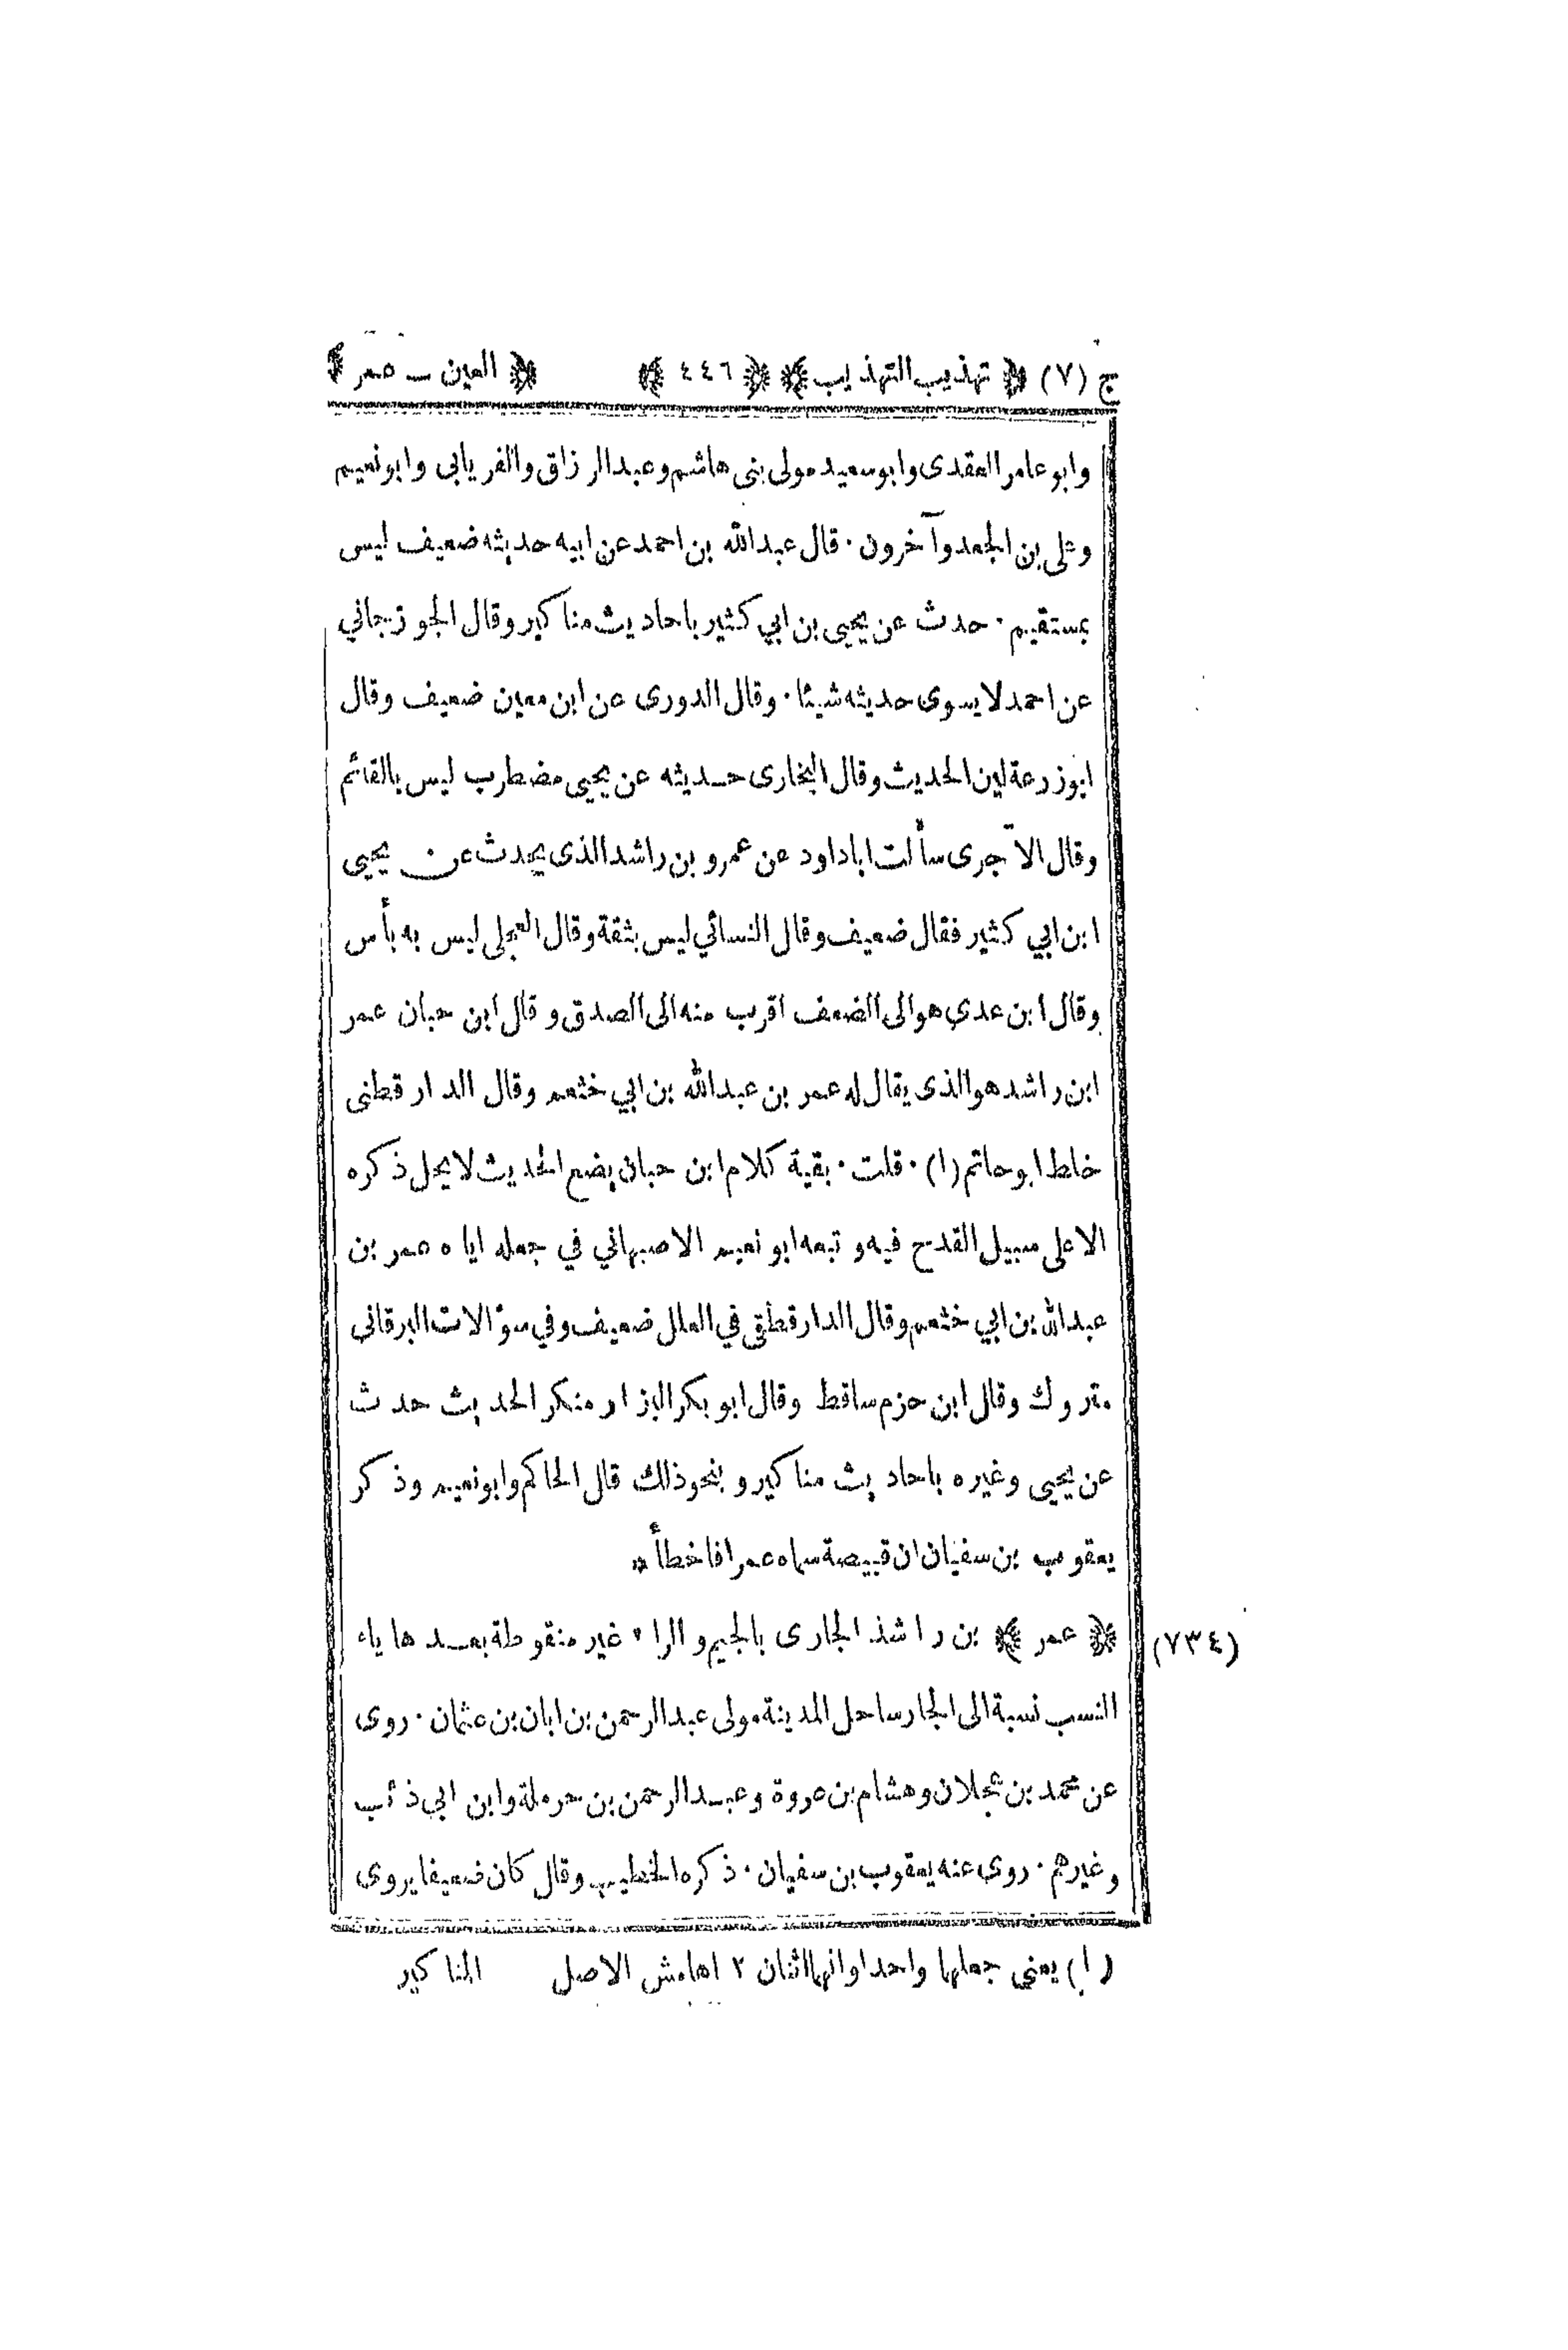 ج (٧) ﴿ تهذيب التهذيب ﴾ ﴿ ٤٤٦ ﴾ ﴿ العين ــ عمر ﴾
وابو عامر العقدى وابو سعيد مولى بنى هاشم وعبد الرزاق والفريابى وابو نعيم
وعلى بن الجعد وآخرون · قال عبد الله بن احمد عن ابيه حديثه ضعيف ليس
بمستقيم · حدث عن يحيى بن ابي كثير باحاديث مناكير وقال الجوزجاني
عن احمد لا يسوى حديثه شيئا · وقال الدورى عن ابن معين ضعيف وقال
ابو زرعة لين الحديث وقال البخارى حديثه عن يحيى مضطرب ليس بالقائم
وقال الآجرى سألت ابا داود عن عمرو بن راشد الذى يحدث عن يحيى
ابن ابي كثير فقال ضعيف وقال النسائي ليس بثقة وقال العجلى ليس به بأس
وقال ابن عدي هو الى الضعف اقرب منه الى الصدق وقال ابن حبان عمر
ابن راشد هو الذى يقال له عمر بن عبد الله بن ابي خثعم وقال الدارقطنى
خلط ابو حاتم (١) · قلت · بقية كلام ابن حبان يضع الحديث لا يحل ذكره
الا على سبيل القدح فيه وتبعه ابو نعيم الاصبهاني في جعله اياه عمر بن
عبد الله بن ابي خثعم وقال الدارقطني في العلل ضعيف وفي سؤالات البرقانى
متروك وقال ابن حزم ساقط وقال ابو بكر البزار منكر الحديث حدث
عن يحيى وغيره باحاديث مناكير وبنحو ذلك قال الحاكم وابو نعيم وذكر
يعقوب بن سفيان ان قبيصة سماه عمرا فاخطأ *
(٧٣٤) ﴿ عمر ﴾ بن راشذ الجارى بالجيم والراء غير منقوطة بعدها ياء
النسب نسبة الى الجار ساحل المدينة مولى عبد الرحمن بن ابان بن عثمان · روى
عن محمد بن عجلان وهشام بن عروة وعبد الرحمن بن حرملة وابن ابي ذئب
وغيرهم · روى عنه يعقوب بن سفيان · ذكره الخطيب وقال كان ضعيفا يروى
(١) يعني جعلهما واحدا وانهما اثنان ١٢ هامش الاصل المناكير